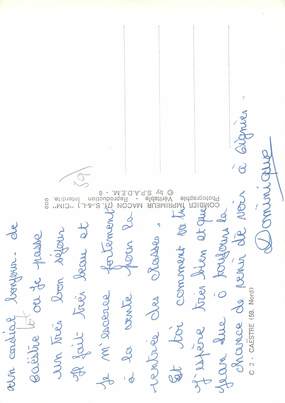 un cordial bonjour de
Caëstre où je passe
un très bon séjour
Il fait très beau et
je m'exerce fortement
à la conté pour la
rentrée des classes.
Et toi comment va tu
J'espère très bien et que
Jean Luc à toujours la
chance de venir de voir à Signier.
Dominique
59
C 2 - CAESTRE (59. Nord)
COMBIER IMPRIMEUR MACON (71.S.-&-L.) "CIM"
Photographie Véritable - Reproduction Interdite
© by S.P.A.D.E.M. - 6